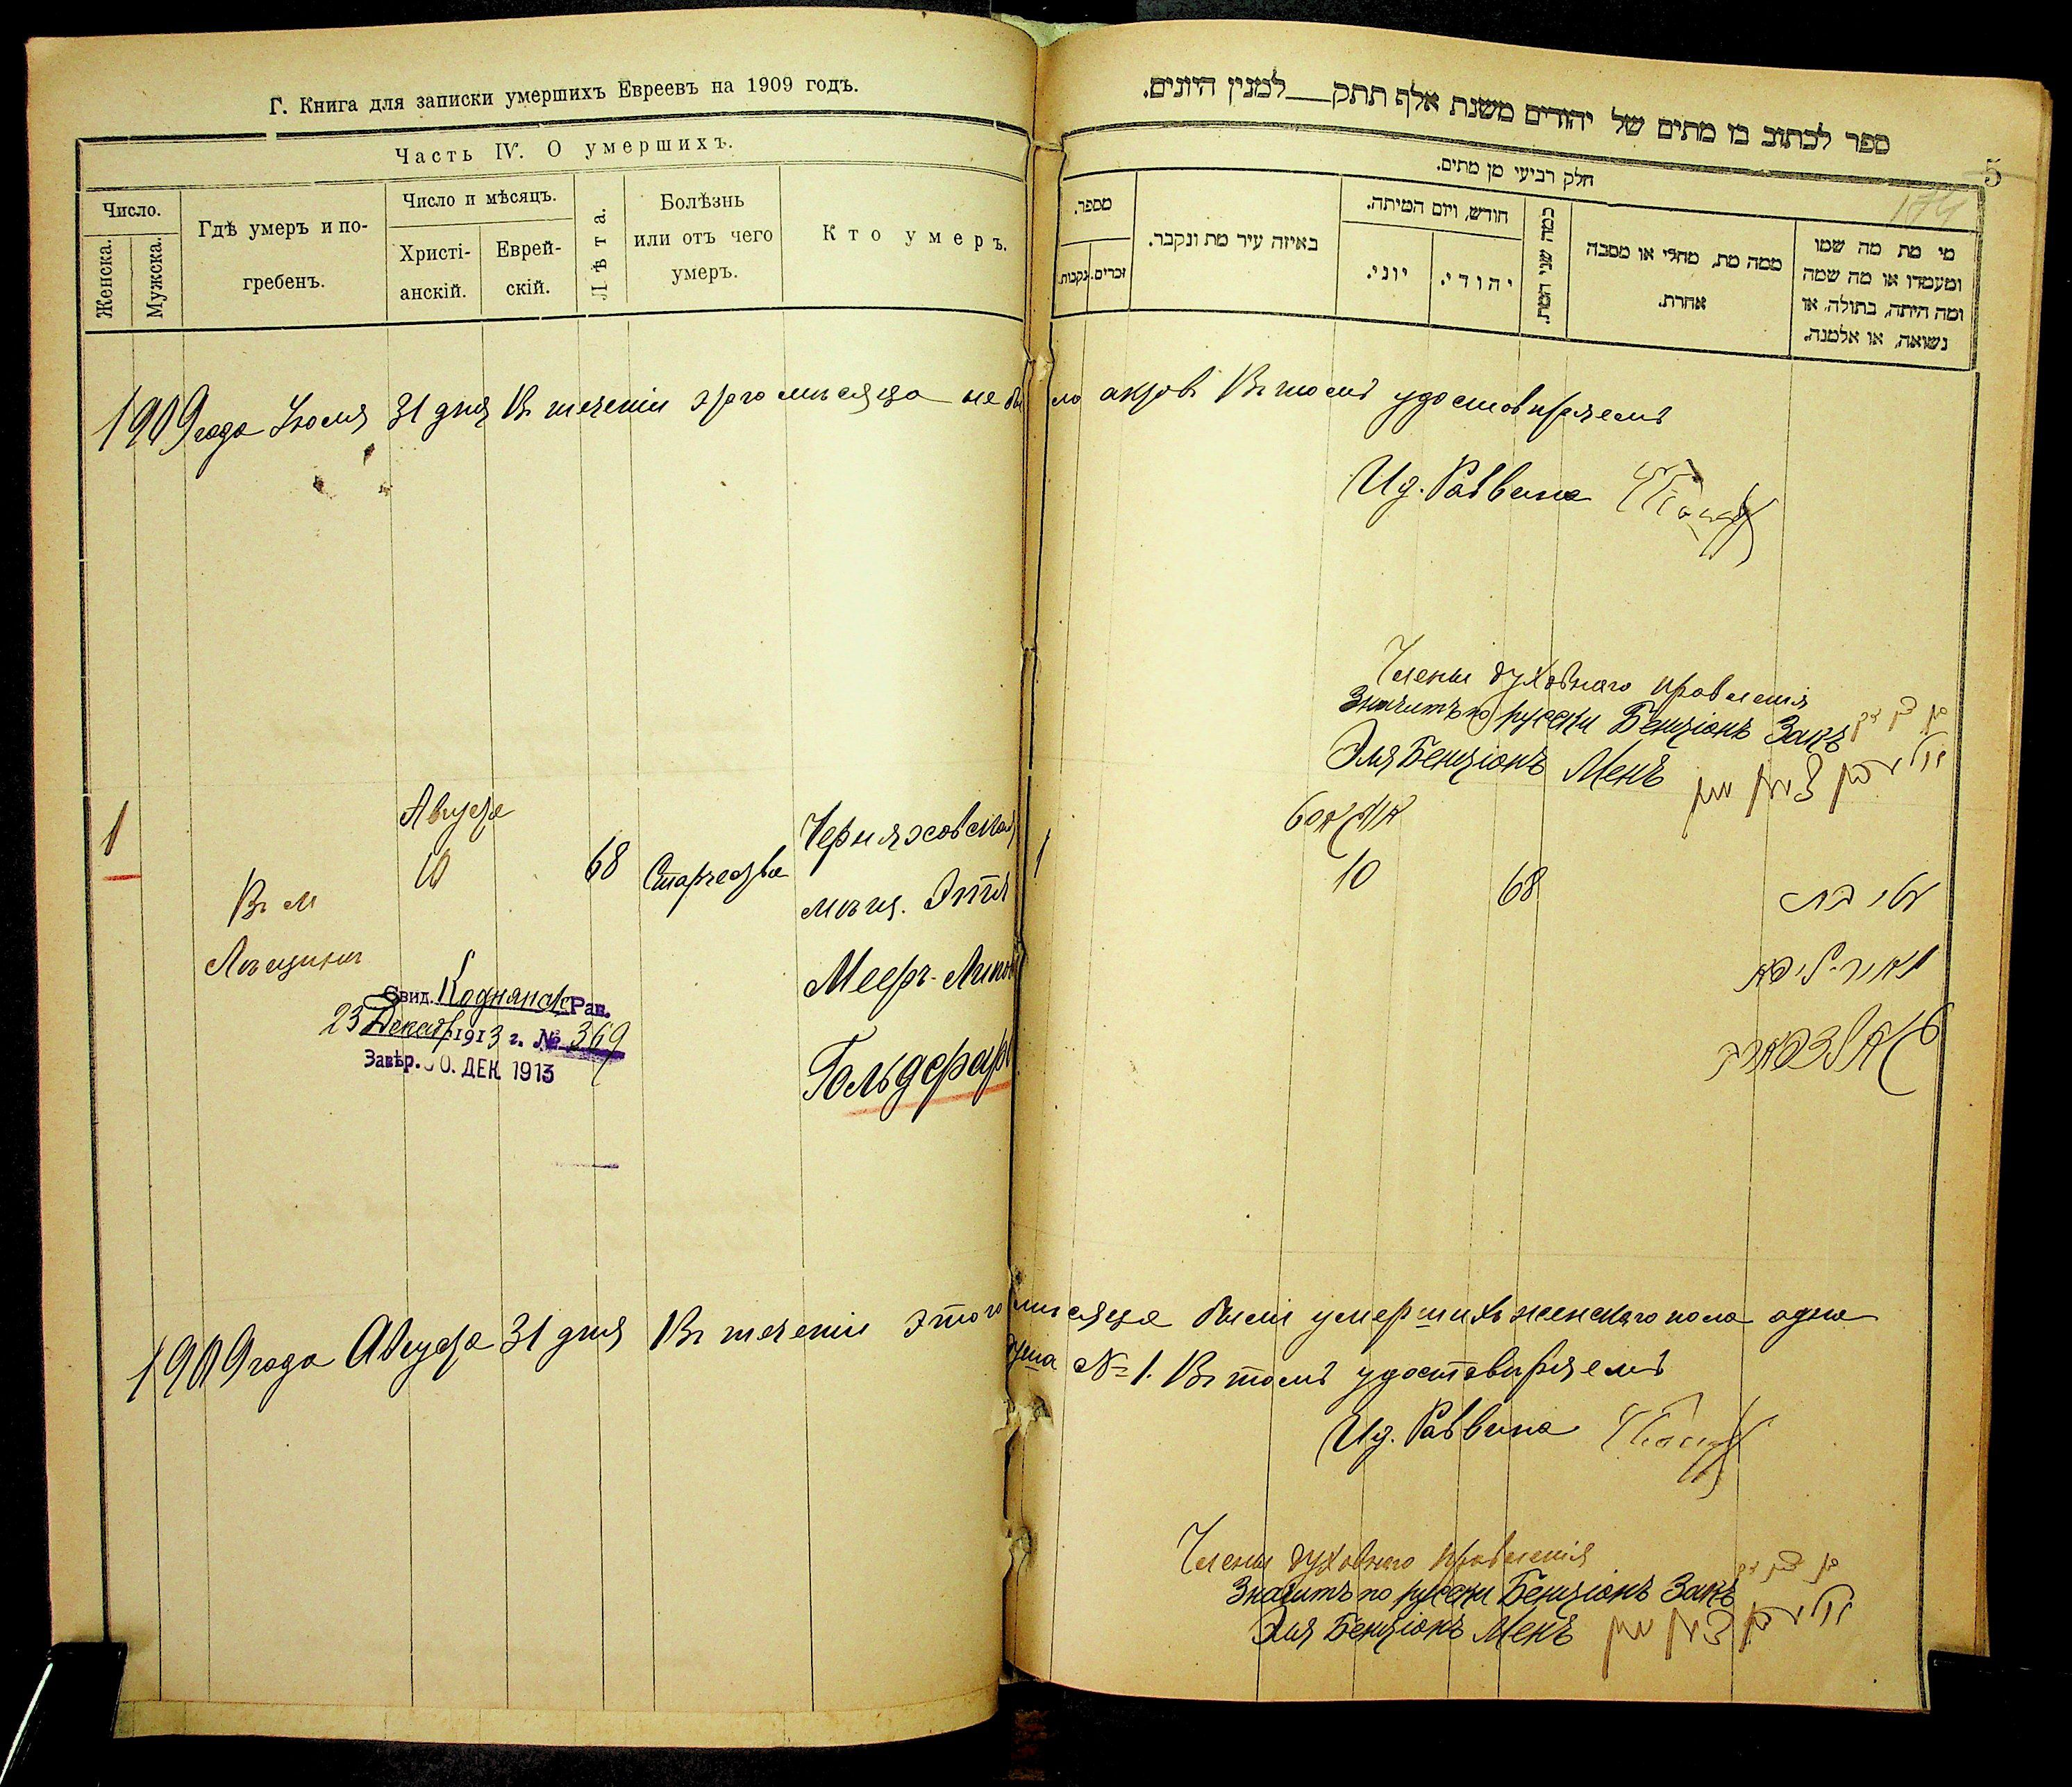 Г. Книга для записки умершихъ Евреевъ на 1909 годъ.
Часть IV. О умершихъ.
Число.
Женска.
Мужска.
Гдѣ умеръ и по-
гребенъ.
Число и мѣсяцъ.
Христі-
анскій.
Еврей-
скій.
Лѣта.
Болѣзнь
или отъ чего
умеръ.
Кто умеръ.
ספר לכתוב בו מתים של יהודים משנת אלף תתק__למנין היונים.
5
174
חלק רביעי מן מתים.
מספר.
נקבות.
זכרים.
באיזה עיר מת ונקבר.
חודש, ויום המיתה.
יוני.
יהודי.
כמה שני המת.
ממה מת, מחלי או מסבה
אחרת.
מי מת מה שמו
ומעמדו או מה שמה
ומה היתה, בתולה, או
נשואה, או אלמנה.
1909 года Іюля 31 дня Въ теченіи этого мѣсяца не было актовъ Въ томъ удостовѣряемъ
Ид. Раввина
Члены духовнаго правленія
Значитъ по русски Бенціонъ Закъ
Эля Бенціонъ Менъ
1
Въ м
Августа
10
68
Старчества
Черняховская
мѣщ. Этя
Мееръ-Липо
Гольдфарб
Свид. Коднянск Рав.
23 Декаб 1913 г. № 369
Завѣр. 30. ДЕК 1913
1
אוגוסט
10
68
עטי בת
מאיר-ליפא
גאלדפארב
1909 года Августа 31 дня Въ теченіи этого мѣсяца были умершихъ женскаго пола одна
душа № 1. Въ томъ удостовѣряемъ
Ид. Раввина
Члены духовнаго правленія
Значитъ по русски Бенціонъ Закъ
Эля Бенціонъ Менъ